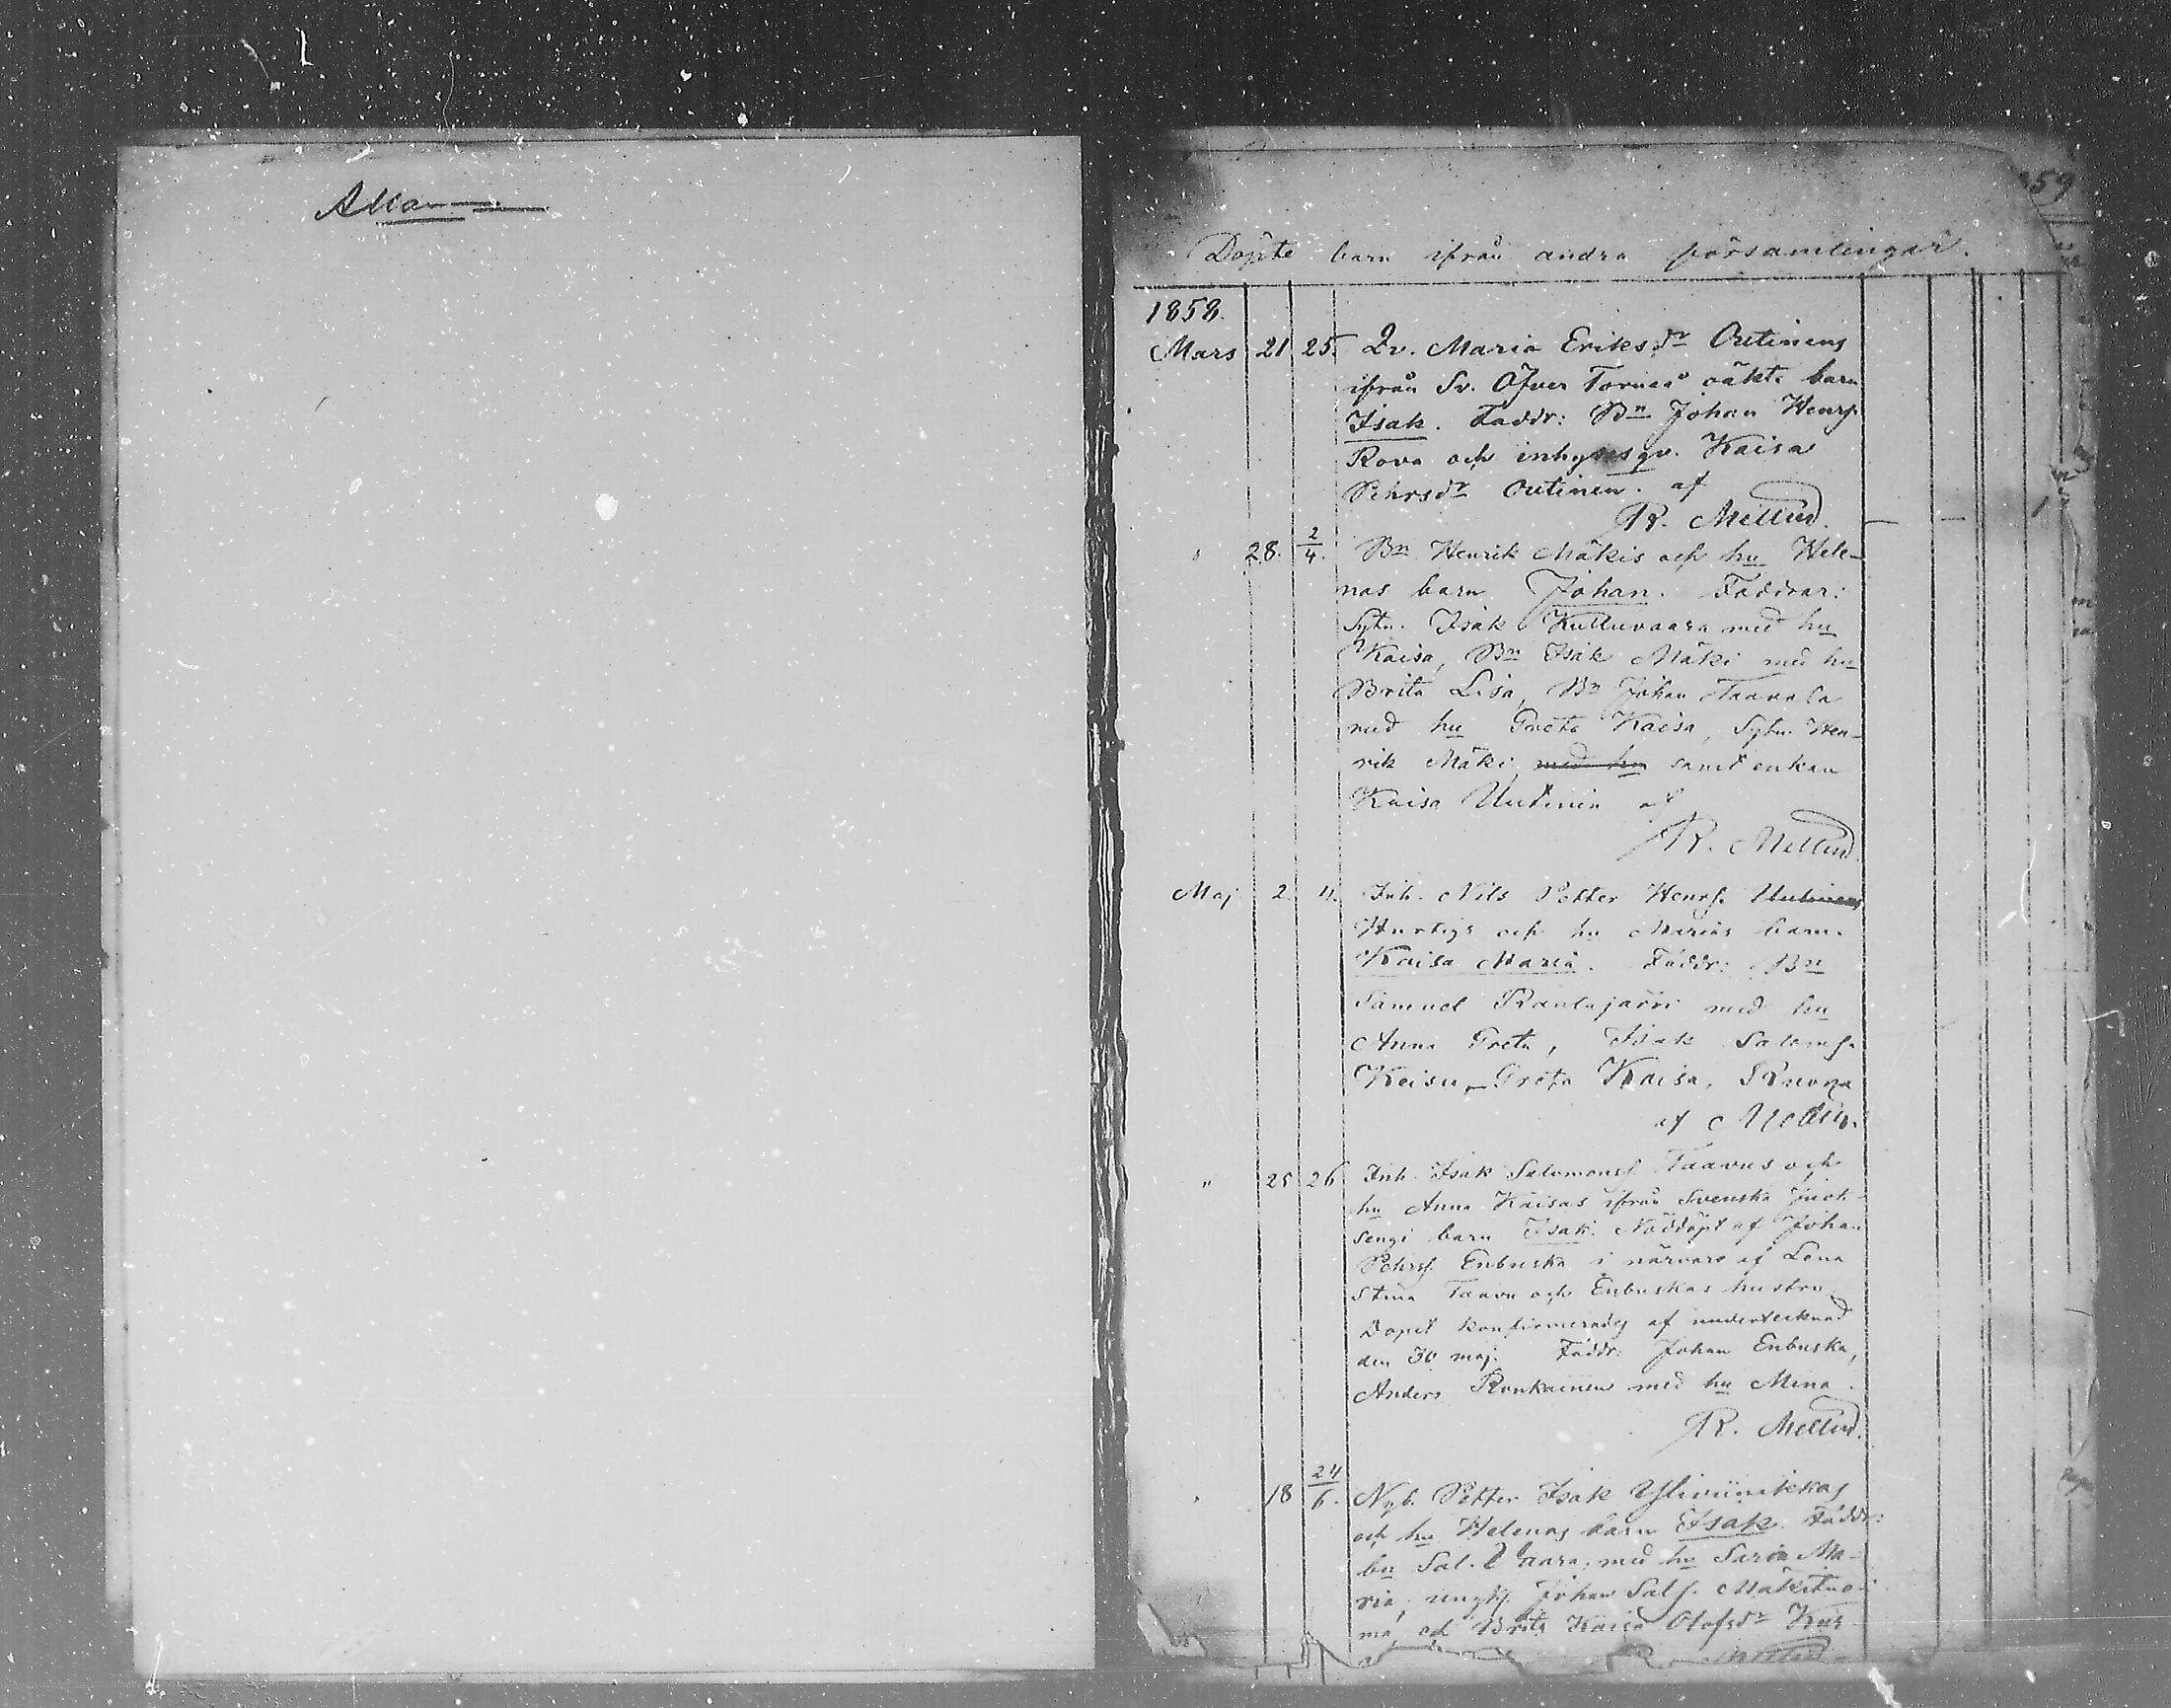 159
Döpte barn ifrån andra församlingar.
1858.
Mars 21 25. Qv. Maria Eriksdr Outinens
ifrån Sv. Öfver Torneå oäkta barn
Isak. Faddr: Bn Johan Henrs.
Rova och inhysesqv. Kaisa
Pehrsdr Outinen. af
R. Mellin.
" 28. 2/4. Bn Henrik Mäkis och hu Hele-
nas barn Johan. Faddrar:
Sytn. Isak Kulluvaara med hu
Kaisa, Bn Isak Mäki med hu
Brita Lisa, Bn Johan Taavola
med hu Greta Kaisa, Sytn. Hen-
rik Mäki med hu samt enkan
Kaisa Uutinin af
R. Mellin.
Maj 2. 4. Inh. Nils Petter Henrs. Uutinens
Hurtigs och hu Marias barn.
Kaisa Maria. Faddr: Bn
Samuel Rautajärvi med hu
Anna Greta, Isak Saloms.
Keisu, Greta Kaisa,
af Mellin.
" 25 26 Inh. Isak Salomons Taavus och
hu Anna Kaisas ifrån Svenska Juok-
sengi barn Isak. Nöddöpt af Johan
Pehrs. Enbuska i närvaro af Lena
Stina Taavu och Enbuskas hustru
Dopet konfirmerades af undertecknad
den 30 maj. Faddr: Johan Enbuska,
Anders Ronkainen med hu Mina.
R. Mellin.
" 18 24/6. Nyb. Petter Isak Yliviinikkas
och hu Helenas barn Isak. Faddr:
bn Sal. Vaara, med hu Sarin Ma-
ria, ungk. Johan Sals. Mäkituo-
ma, och Brita Kaisa Olofsdr Kur-
Mellin